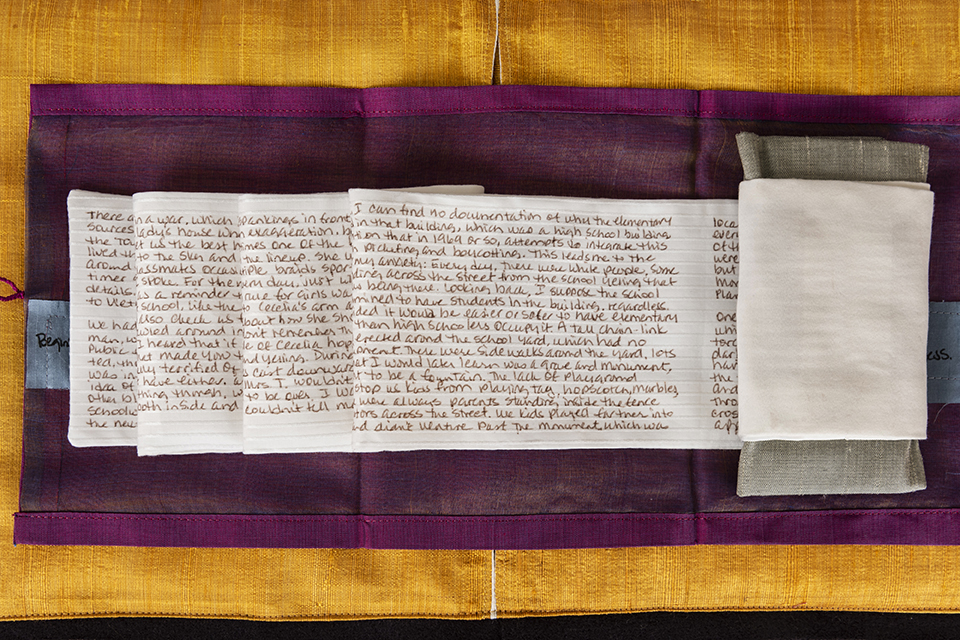 Begin
There a
sources
the To
lived t
around
timer
details
to Viet
We had
man, w
Public
was in
idea of
other bl
schoolw
the new
n a war, which
lady's house wh
at us the best
to the Skin and
assmates occasi
stroke. For the
as a reminder t
school, like the
also check us
around in
heard that if
at made you t
terrified of
have either, a
thing though, w
oth inside and
spankings in front
exaggeration, b
times one of the
the lineup. She
iple braids spor
ern days, just w
rue for girls wa
to Cecelia's arm a
bout how she sho
on't remember th
e of Cecelia hop
d yelling. During
cast downward
I wouldn't
to be over. I we
couldn't tell m
I can find no documentation of why the elementary
in that building, which was a high school building
on that in 1969 or so, attempts to integrate this
picketing and boycotting. This leads me to the
my anxiety: Every day, there were white people, some
ding across the street from the school yelling that
being there. Looking back, I suppose the school
mined to have students in the building, regardless.
ded it would be easier or safer to have elementary
than high schoolers occupy it. A tall chain-link
pected around the school yard, which had no
pment. There were side walks around the yard, lots
at I would later learn was a grave and monument,
t to be a fountain. The lack of playground
stop us kids from playing tag, hopscotch, marbles,
were always parents standing inside the fence
tors across the street. We kids played farther into
nd didn't venture past the monument, which was
loca
ever
of th
were
but
Mon
Plan
One
whic
tor
pla
hav
the
and
Thro
cros
app
ess.